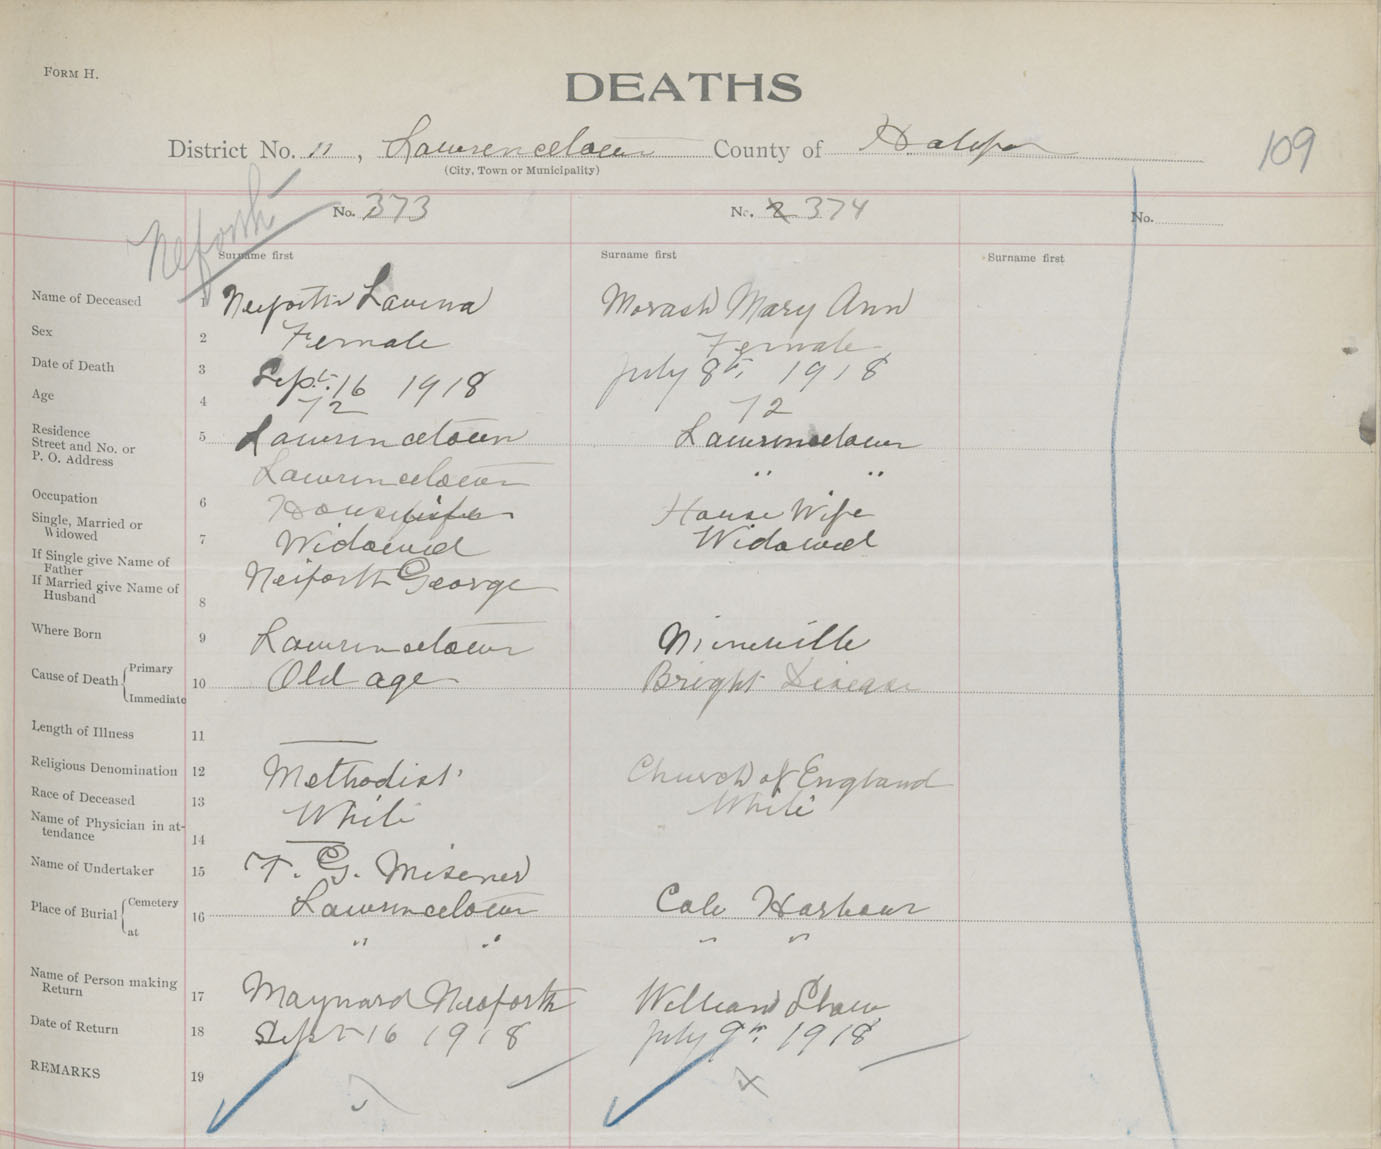 FORM H.
DEATHS
109
District No. 11, Lawrencetown County of Halifax
(City, Town or Municipality)
No. 373 No. 2 374 No.
Neiforth
Surname first Surname first Surname first
Name of Deceased 1 Neiforth Lavina Morash Mary Ann
Sex 2 Female Female
Date of Death 3 Sept. 16 1918 July 8th, 1918
Age 4 72 72
Residence 5 Lawrencetown Lawrencetown
Street and No. or
P. O. Address Lawrencetown " "
Occupation 6 Housewife House Wife
Single, Married or
Widowed 7 Widowed Widowed
If Single give Name of
Father Neiforth George
If Married give Name of
Husband 8
Where Born 9 Lawrencetown Mineville
Cause of Death { Primary
Immediate 10 Old age Bright Disease
Length of Illness 11 —
Religious Denomination 12 Methodist Church of England
Race of Deceased 13 White White
Name of Physician in at-
tendance 14 —
Name of Undertaker 15 T. G. Misener
Place of Burial { Cemetery
16 Lawrencetown Cole Harbour
at " " " "
Name of Person making
Return 17 Maynard Neiforth William Shaw
Date of Return 18 Sept 16 1918 July 9th, 1918
REMARKS 19